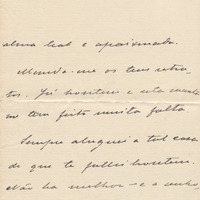 alma leal e apaixonada.
Manda-me os teus retra-
tos. Já hontem e esta manhã
me tem feito muita falta
Sempre aluguei a tal casa
de que te fallei hontem.
Não ha melhor - e a senho,